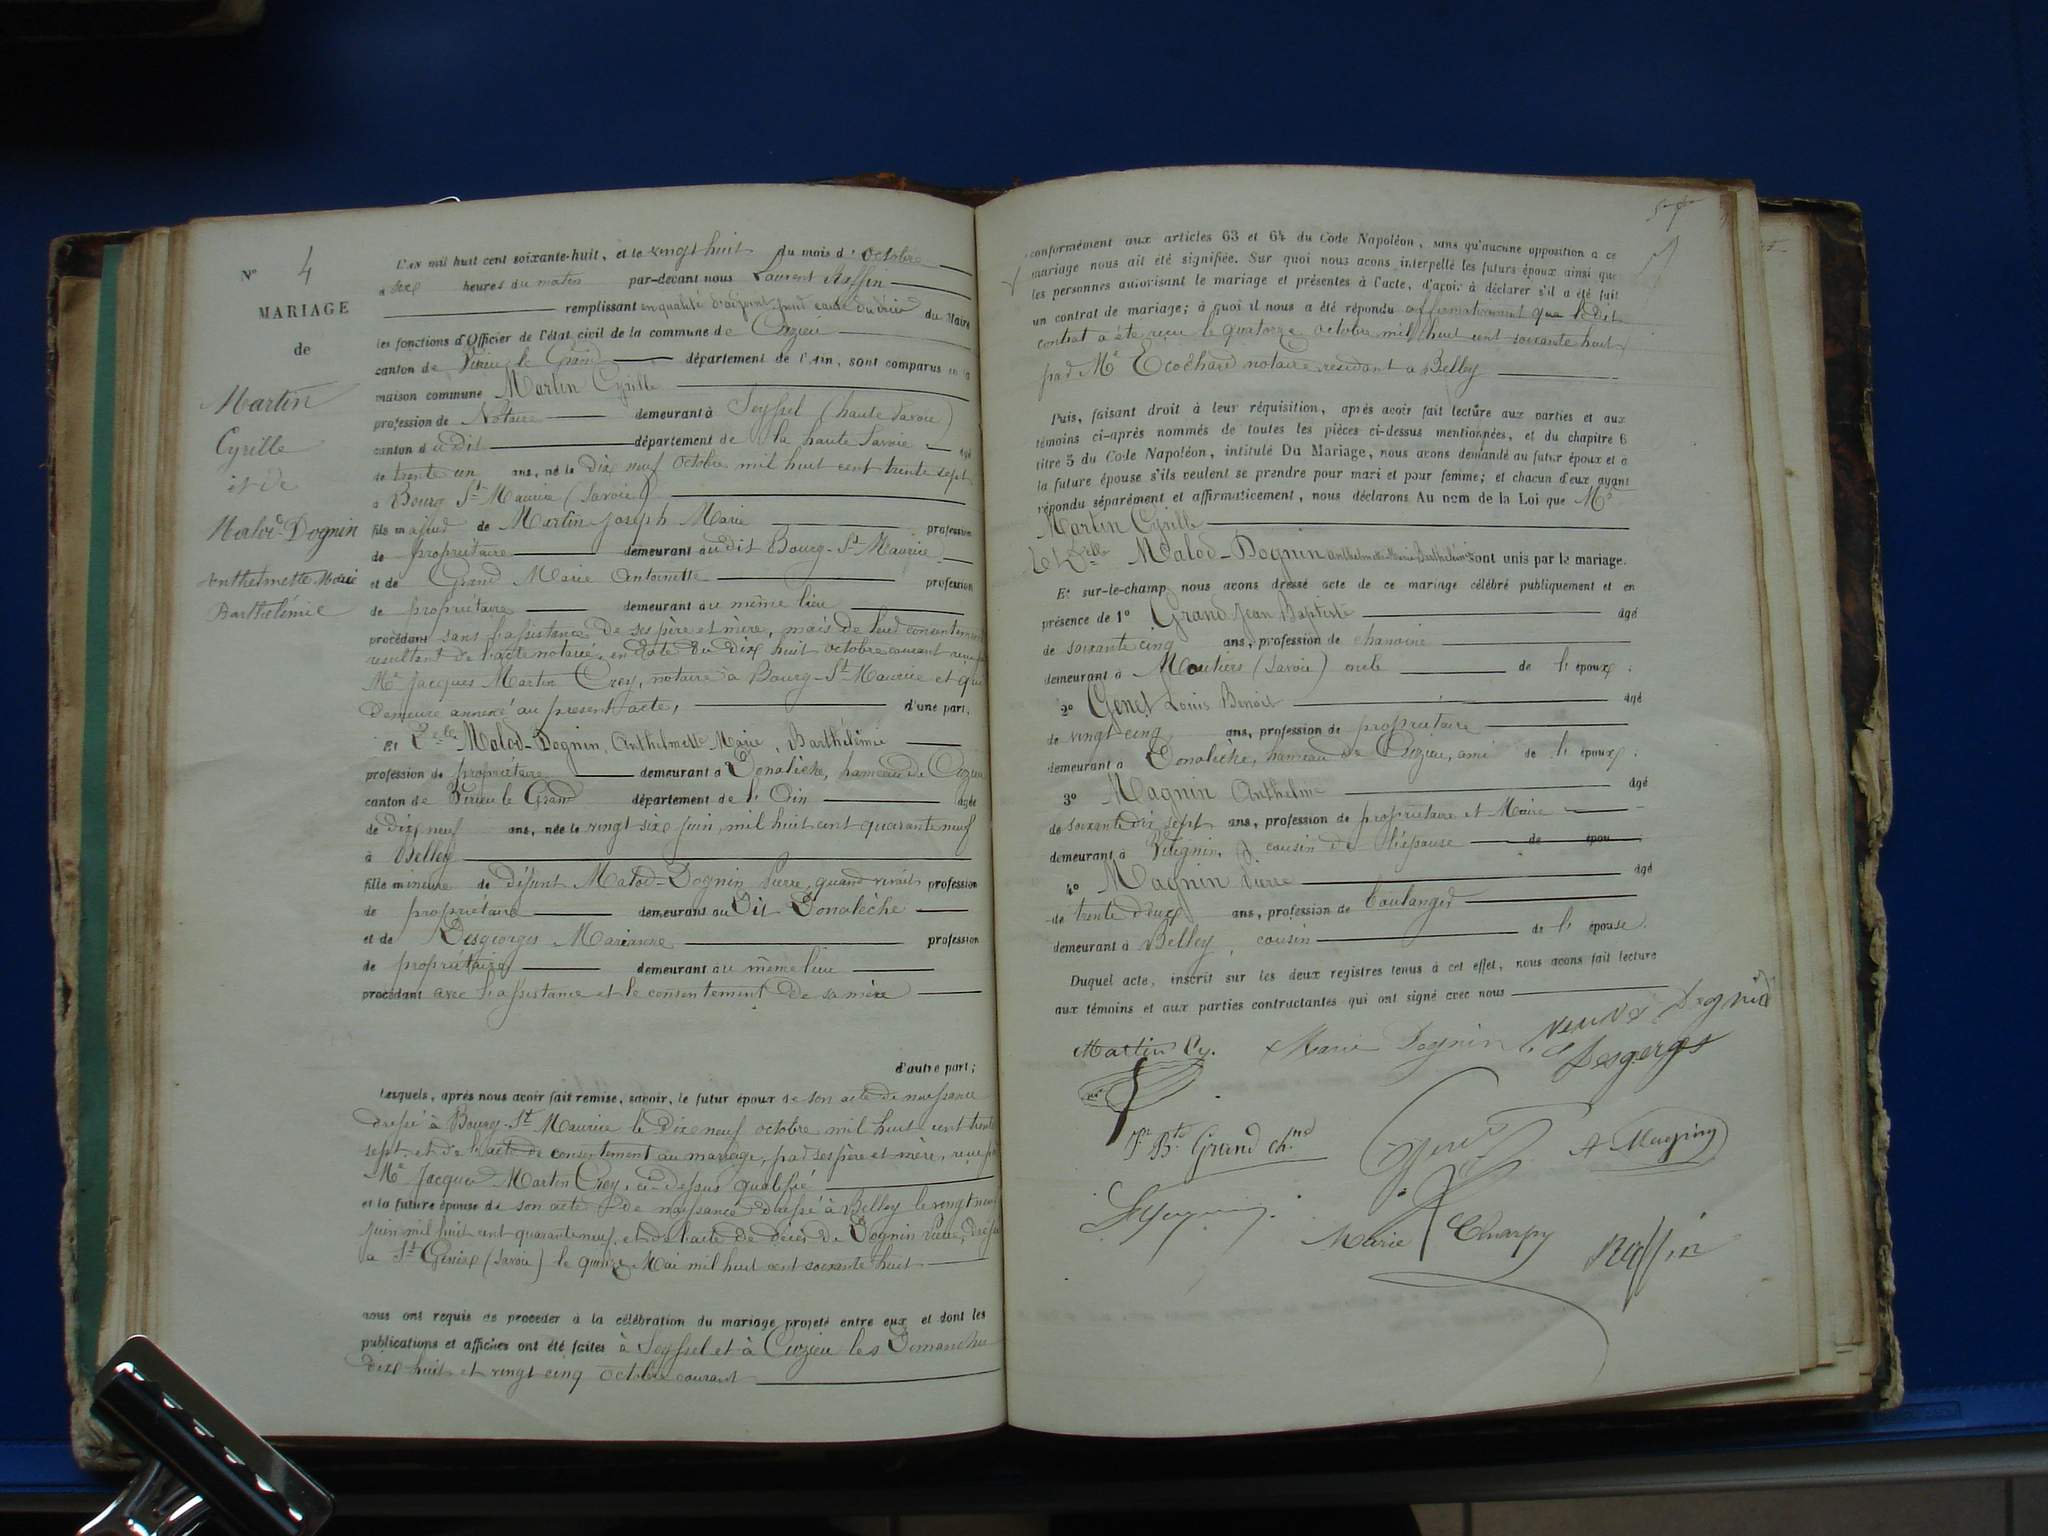 N° 4
MARIAGE
de
Martin
Cyrille
et de
Malod-Dognin
Anthelmette Marie
Barthélémie
L'AN mil huit cent soixante-huit, et le vingt huit du mois d'octobre
à dix heures du matin par-devant nous Laurent Ruffin
remplissant en qualité d'adjoint pour cause du décès du Maire
les fonctions d'Officier de l'état civil de la commune de Cuzieu
canton de Virieu le Grand département de l'Ain, sont comparus en la
maison commune Martin Cyrille
profession de Notaire demeurant à Seyssel (haute Savoie)
canton dudit département de la haute Savoie âgé
de trente un ans, né le dix neuf octobre mil huit cent trente sept
à Bourg St Maurice (Savoie)
fils majeur de Martin Joseph Marie profession
de propriétaire demeurant audit Bourg-St-Maurice
et de Grand Marie Antoinette profession
de propriétaire demeurant au même lieu
procédant sans l'assistance de ses père et mère, mais de leur consentement
résultant de l'acte notarié, en date du dix huit octobre courant reçu par
Me Jacques Martin Crey, notaire à Bourg-St-Maurice et qui
demeure annexé au présent acte, d'une part,
Et Delle Malod-Dognin, Anthelmette Marie, Barthélémie
profession de propriétaire demeurant à Bonalèche, hameau de Cuzieu
canton de Virieu le Grand département de l'Ain âgée
de dix neuf ans, née le vingt six juin, mil huit cent quarante neuf
à Belley
fille mineure de défunt Malod-Dognin Pierre, quand vivait profession
de propriétaire demeurant audit Bonalèche
et de Desgeorges Marianne profession
de propriétaire demeurant au même lieu
procédant avec l'assistance et le consentement de sa mère
d'autre part;
Lesquels, après nous avoir fait remise, savoir, le futur époux de son acte de naissance
dressé à Bourg-St Maurice le dix neuf octobre mil huit cent trente
sept, et de l'acte de consentement au mariage, par ses père et mère, reçu par
Me Jacques Martin Crey, ci-dessus qualifié
et la future épouse de son acte de naissance dressé à Belley le vingt neuf
juin mil huit cent quarante neuf, et de l'acte de décès de Dognin Pierre, dressé
à St Genix (Savoie) le quinze Mai mil huit cent soixante huit
nous ont requis de procéder à la célébration du mariage projeté entre eux et dont les
publications et affiches ont été faites à Seyssel et à Cuzieu les Dimanches
dix huit et vingt cinq octobre courant
conformément aux articles 63 et 64 du Code Napoléon, sans qu'aucune opposition à ce
mariage nous ait été signifiée. Sur quoi nous avons interpellé les futurs époux ainsi que
les personnes autorisant le mariage et présentes à l'acte, d'avoir à déclarer s'il a été fait
un contrat de mariage; à quoi il nous a été répondu affirmativement que ledit
contrat a été reçu le quatorze octobre mil huit cent soixante huit
par Me Ecochard notaire résidant à Belley
Puis, faisant droit à leur réquisition, après avoir fait lecture aux parties et aux
témoins ci-après nommés de toutes les pièces ci-dessus mentionnées, et du chapitre 6
titre 5 du Code Napoléon, intitulé Du Mariage, nous avons demandé au futur époux et à
la future épouse s'ils veulent se prendre pour mari et pour femme; et chacun d'eux ayant
répondu séparément et affirmativement, nous déclarons Au nom de la Loi que Mr
Martin Cyrille
et Delle Malod-Dognin Anthelmette Marie Barthélémie sont unis par le mariage.
Et sur-le-champ nous avons dressé acte de ce mariage célébré publiquement et en
présence de 1° Grand Jean Baptiste âgé
de soixante cinq ans, profession de chanoine
demeurant à Moutiers (Savoie) oncle de l'époux;
2° Genet Louis Benoit âgé
de vingt cinq ans, profession de propriétaire
demeurant à Bonalèche, hameau de Cuzieu, ami de l'époux;
3° Magnin Anthelme âgé
de soixante dix sept ans, profession de propriétaire et Maire
demeurant à Vitignin, cousin de l'épouse de épou
4° Magnin Pierre âgé
de trente deux ans, profession de boulanger
demeurant à Belley, cousin de l'épouse.
Duquel acte, inscrit sur les deux registres tenus à cet effet, nous avons fait lecture
aux témoins et aux parties contractantes qui ont signé avec nous
Martin Cy. Marie Dognin Veuve Dognin
Desgorges
Jn Bte Grand chne Genet A Magnin
Marie Charpy Ruffin